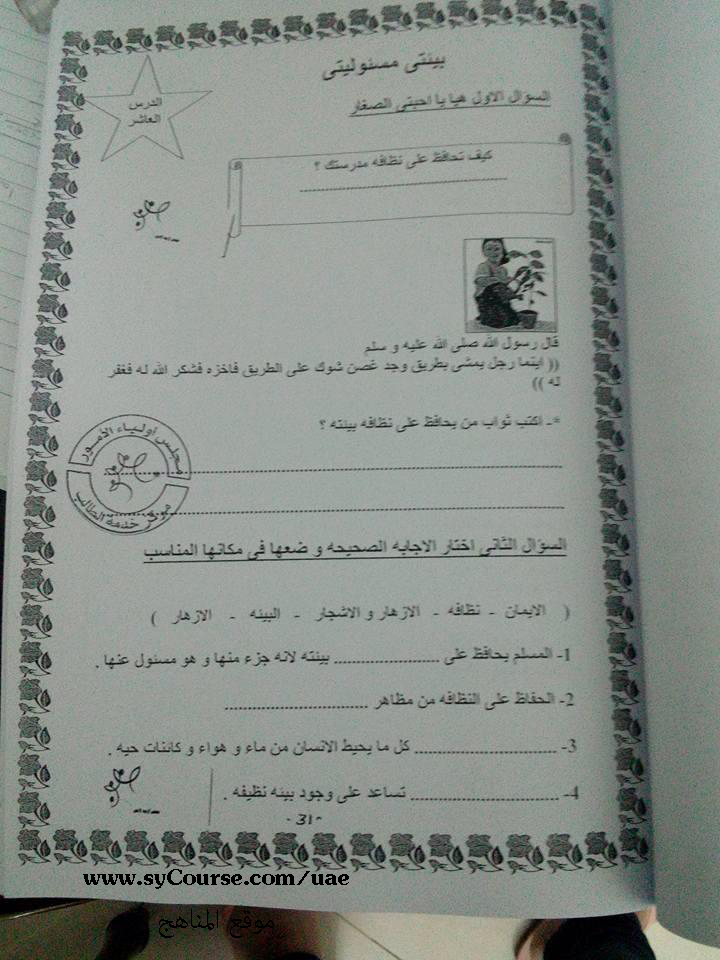 بيئتى مسئوليتى
الدرس
العاشر
السؤال الاول هيا يا احبتى الصغار
كيف تحافظ على نظافه مدرستك ؟
قال رسول الله صلى الله عليه و سلم
(( اينما رجل يمشى بطريق وجد غصن شوك على الطريق فاخزه فشكر الله له فغفر
له ))
*- اكتب ثواب من يحافظ على نظافه بيئته ؟
مجلس أولياء الأمور
مركز خدمة الطالب
السؤال الثانى اختار الاجابه الصحيحه و ضعها فى مكانها المناسب
( الايمان - نظافه - الازهار و الاشجار - البيئه - الازهار )
1- المسلم يحافظ على ........................ بيئته لانه جزء منها و هو مسئول عنها .
2- الحفاظ على النظافه من مظاهر ................................
3- ................................ كل ما يحيط الانسان من ماء و هواء و كائنات حيه .
4- ................................ تساعد على وجود بيئه نظيفه .
-31-
www.syCourse.com/uae
موقع المناهج